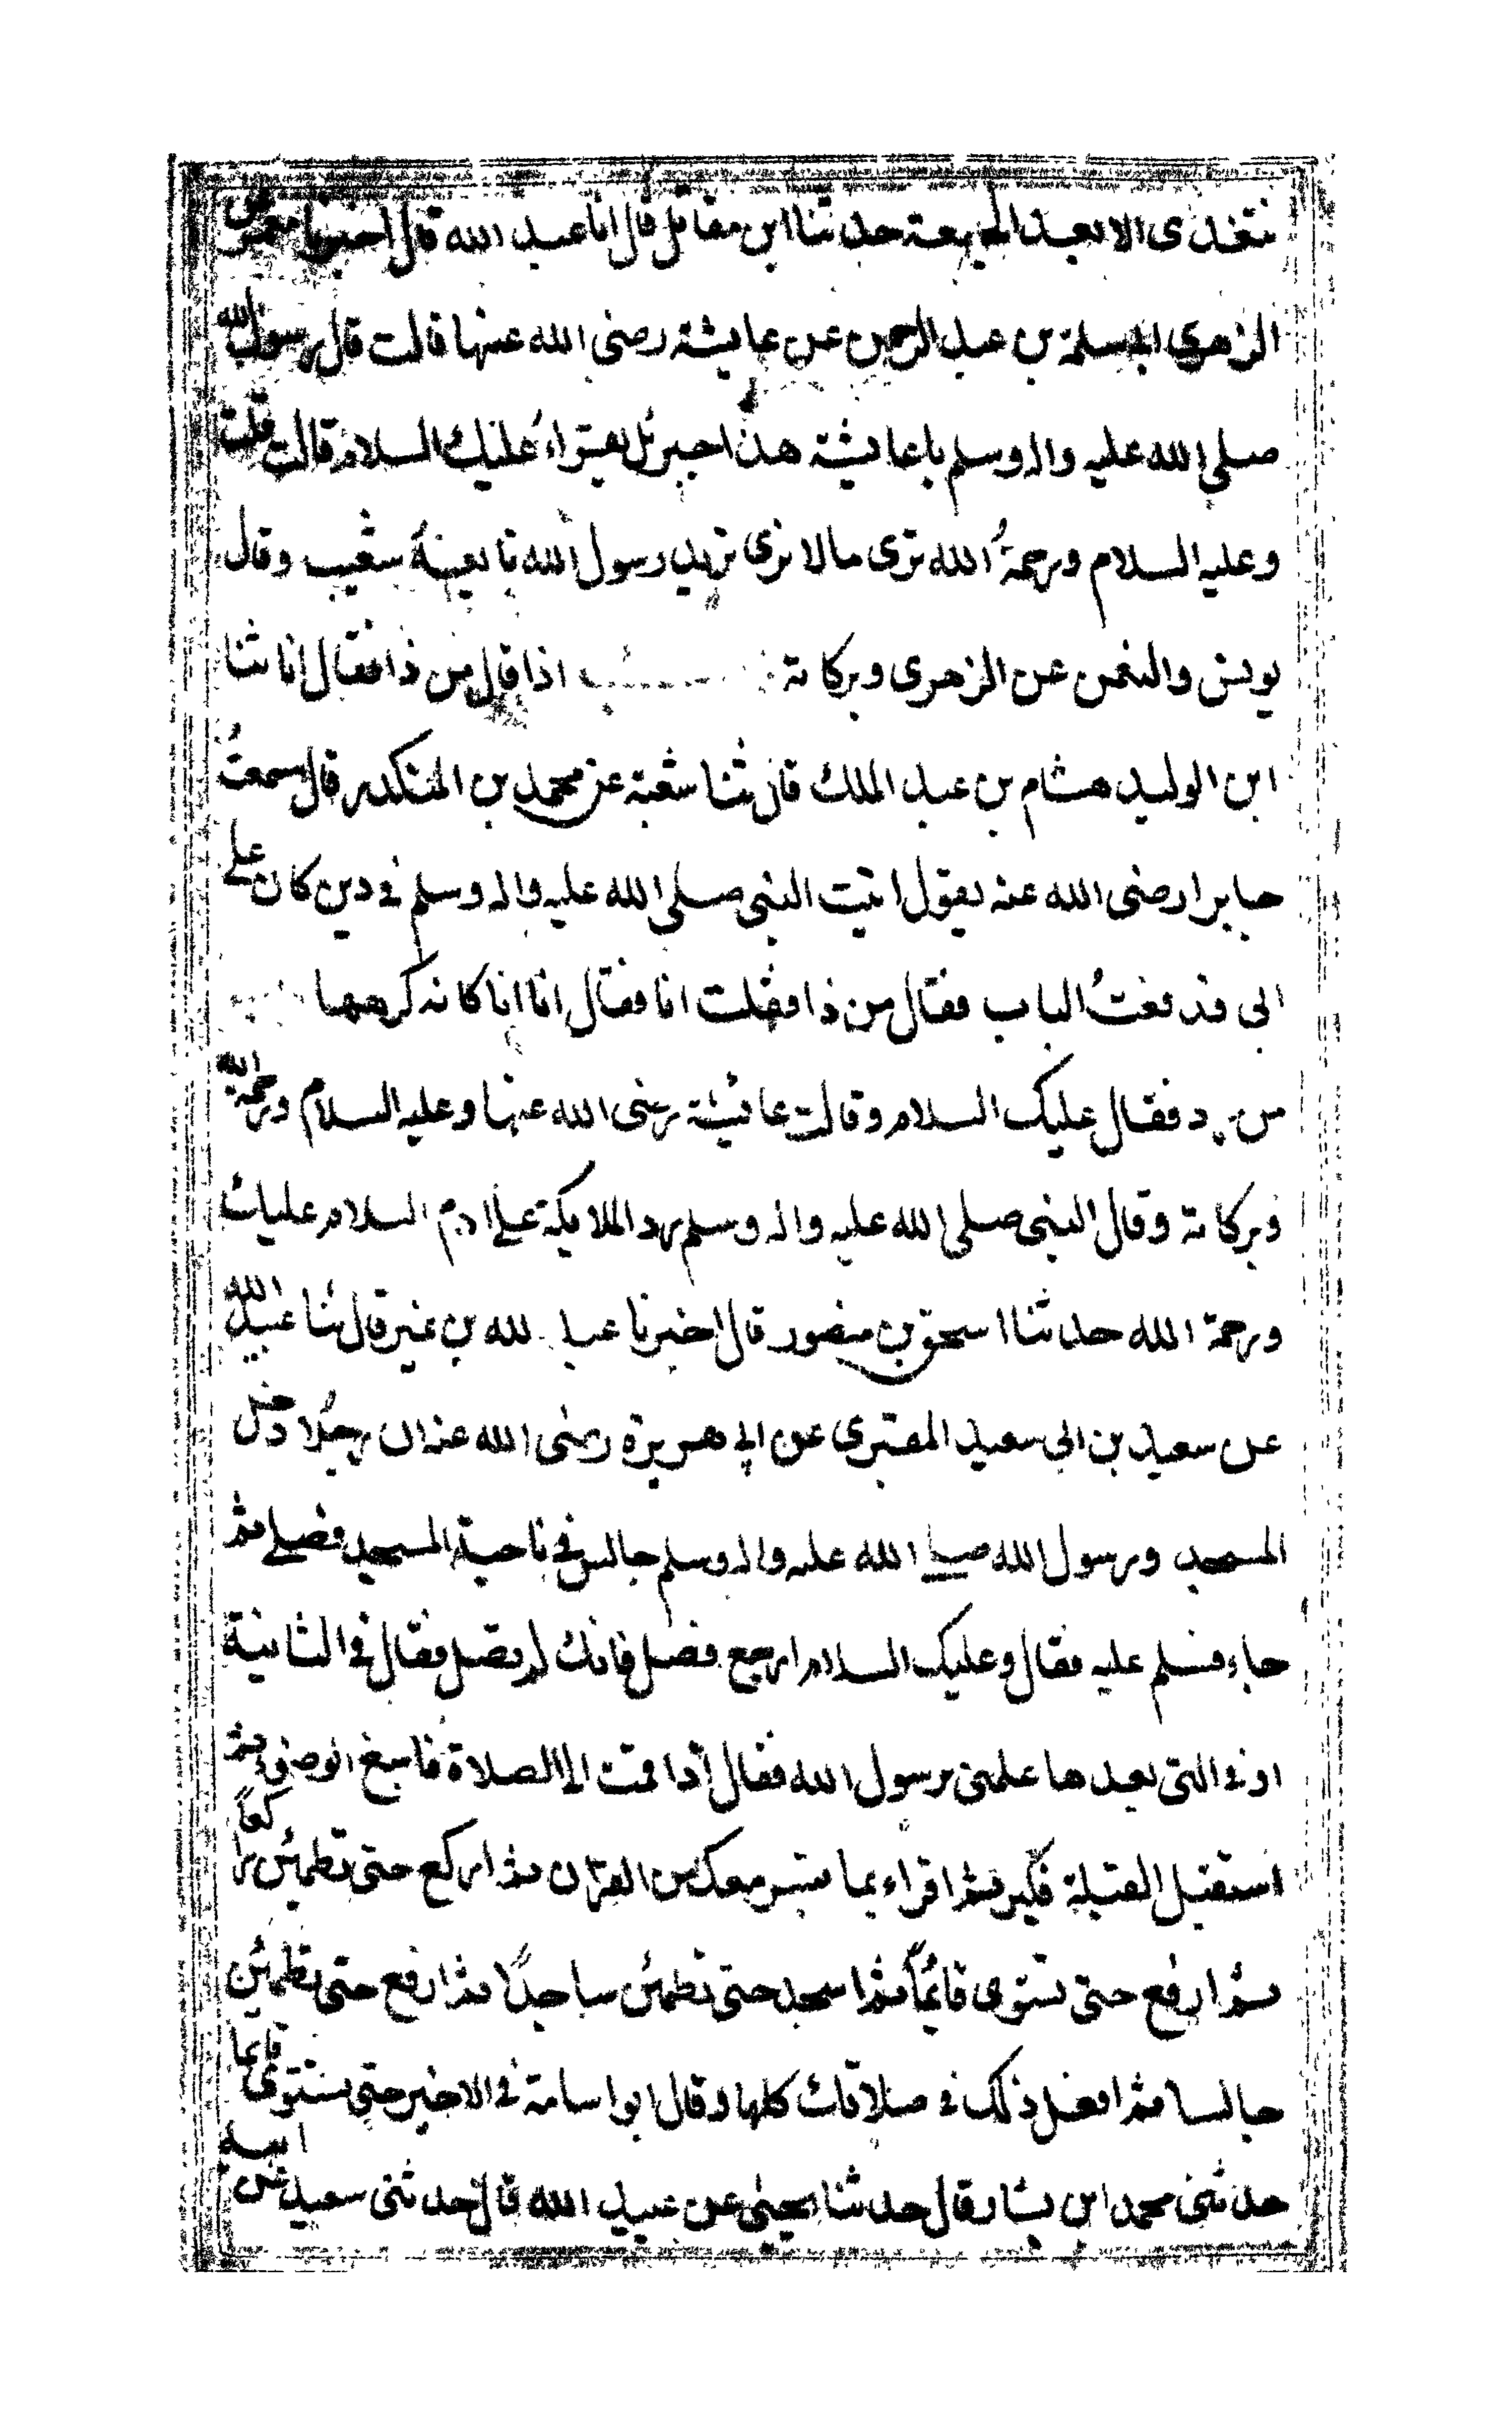 نتغدى الا بعد الجمعة حدثنا ابن مقاتل قال انا عبد الله قال اخبرنا معمر عن
الزهرى ابى سلمة بن عبد الرحمن عن عايشة رضى الله عنها قالت قال رسول الله
صلى الله عليه واله وسلم يا عايشة هذا جبريل يقراء عليك السلام قالت قلت
وعليه السلام ورحمة الله ترى مالا نرى تريد رسول الله تابعه شعيب وقال
يونس والنعمن عن الزهرى وبركاته اذا قال من ذا فقال انا ثنا
ابن الوليد هشام بن عبد الملك قال ثنا شعبة عن محمد بن المنكدر قال سمعتُ
جابرا رضى الله عنه يقول اتيت النبى صلى الله عليه واله وسلم فى دين كان على
ابى فدفعتُ الباب فقال من ذا فقلت انا فقال انا انا كانه كرهها
من رد فقال عليك السلام وقالت عائشة رضى الله عنها وعليه السلام ورحمة الله
وبركاته وقال النبى صلى الله عليه واله وسلم رد الملايكة على ادم السلام عليك
ورحمة الله حدثنا اسحق بن منصور قال اخبرنا عبد الله بن نمير قال ثنا عبيد الله
عن سعيد بن ابى سعيد المقبرى عن ابى هريرة رضى الله عنه ان رجُلا دخل
المسجد ورسول الله صلى الله عليه واله وسلم جالس فى ناحية المسجد فصلى ثم
جاء فسلم عليه فقال وعليك السلام ارجع فصل فانك لم تصل فقال فى الثانية
او فى التى بعدها علمنى رسول الله فقال اذا قمت الى الصلاة فاسبغ الوضوء ثم
استقبل القبلة فكبر ثم اقراء بما تيسر معك من القران ثم اركع حتى تطمئن راكعاً
ثم ارفع حتى تستوى قائماً ثم اسجد حتى تطمئن ساجدًا ثم ارفع حتى تطمئن
جالسا ثم افعل ذلك فى صلاتك كلها وقال ابو اسامة فى الاخير حتى تستوى قايما
حدثنى محمد ابن بشار قال حدثنا يحيى عن عبيد الله قال حدثنى سعيد عن ابيه